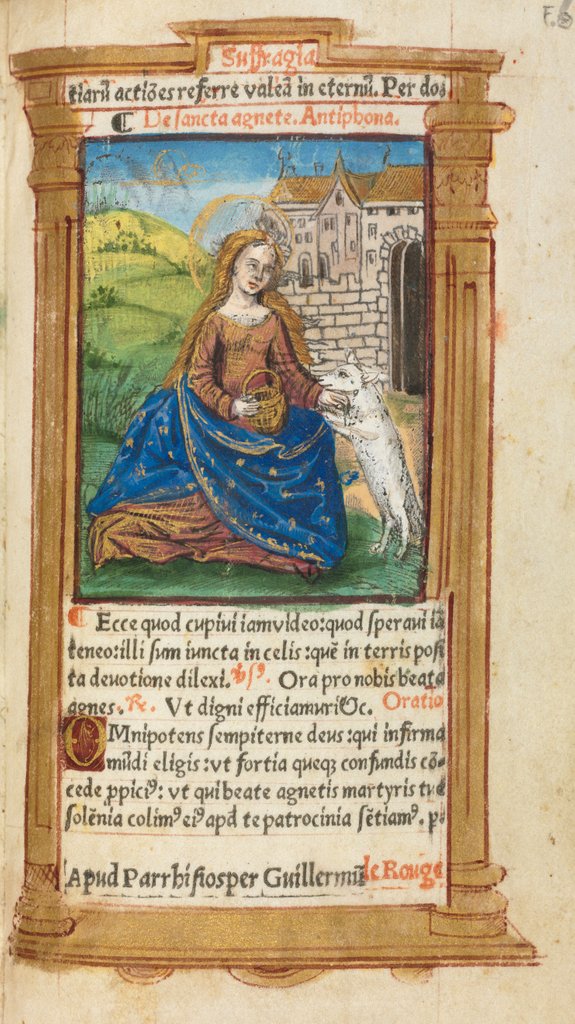 F.6
Suffragia
tiarū actiōes referre valeā in eternū. Per dos
De sancta agnete. Antiphona.
Ecce quod cupiui iam video: quod speraui iā
teneo: illi sum iuncta in celis: quē in terris posi
ta deuotione dilexi. ℣. Ora pro nobis beata
agnes. ℟. Vt digni efficiamur ⁊c. Oratio
OMnipotens sempiterne deus: qui infirma
mūdi eligis: vt fortia queqꝫ confundis cō⸗
cede ꝓpiciꝰ: vt qui beate agnetis martyris tue
solēnia colimꝰ eiꝰ apd te patrocinia sētiamꝰ. p.
Apud Parrhisios per Guillermū le Rouge